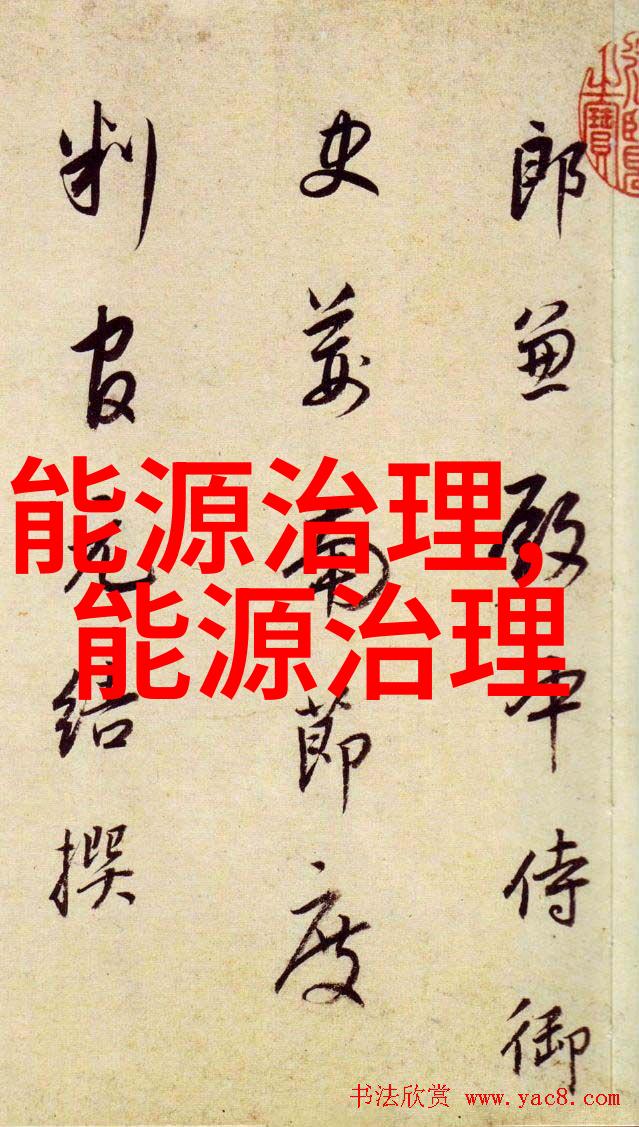 郎兼殿中侍御
史荆南節度
判官元结撰
能源治理,
能源治理
书法欣赏 www.yac8.com